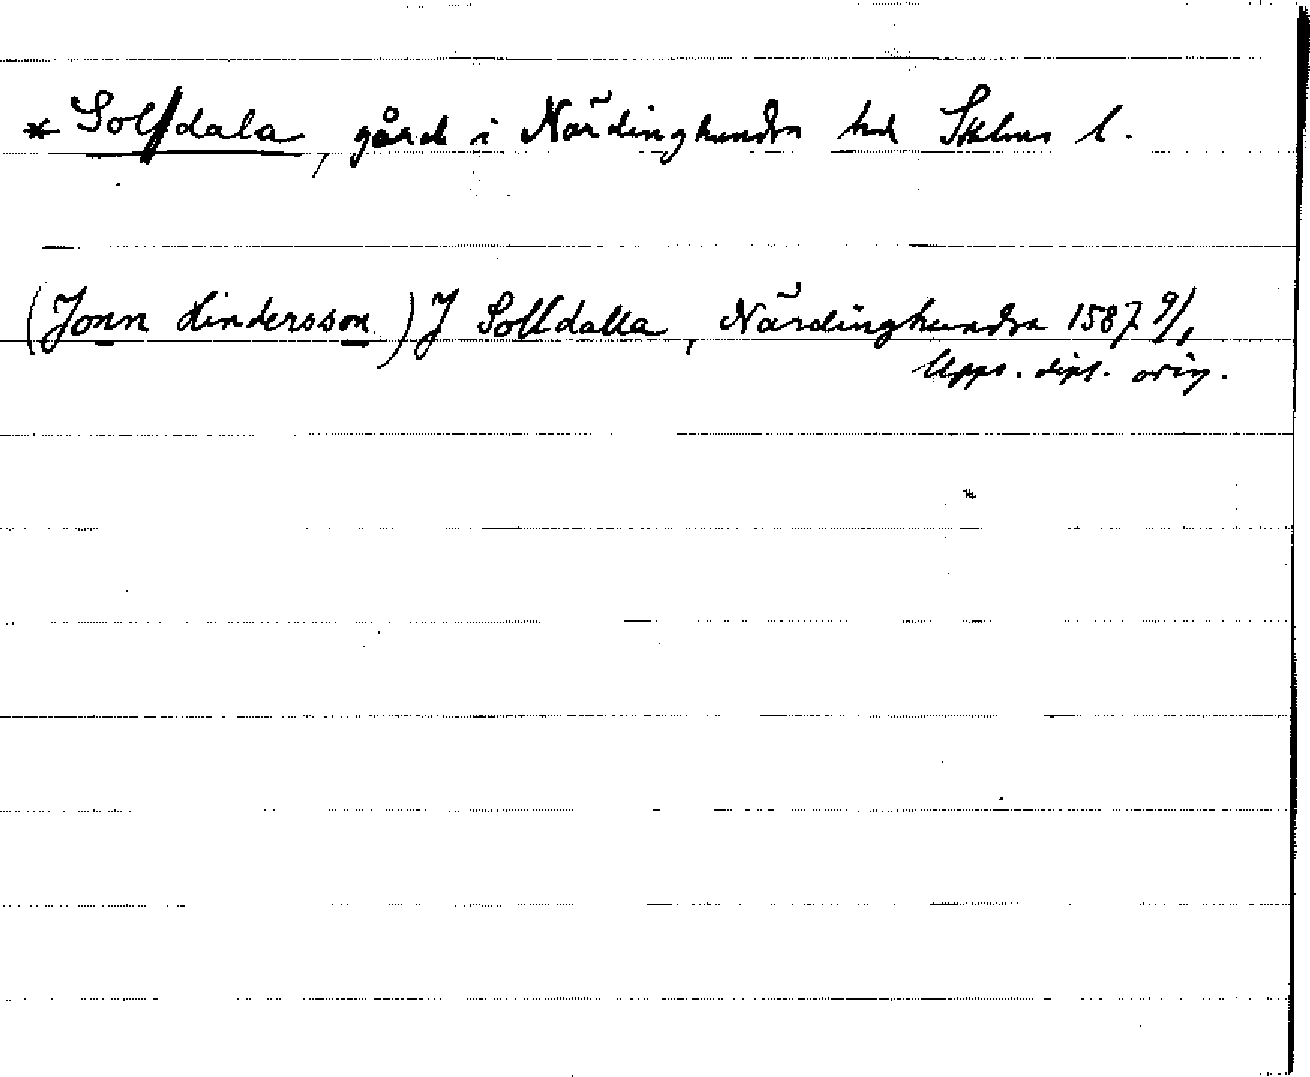 * Soldala, gård i Närdinghundra hd Sthlms l.
(Jonn Lindersson) J Solldalla, Närdinghundra 1587 9/1
Upps. dipl. orig.